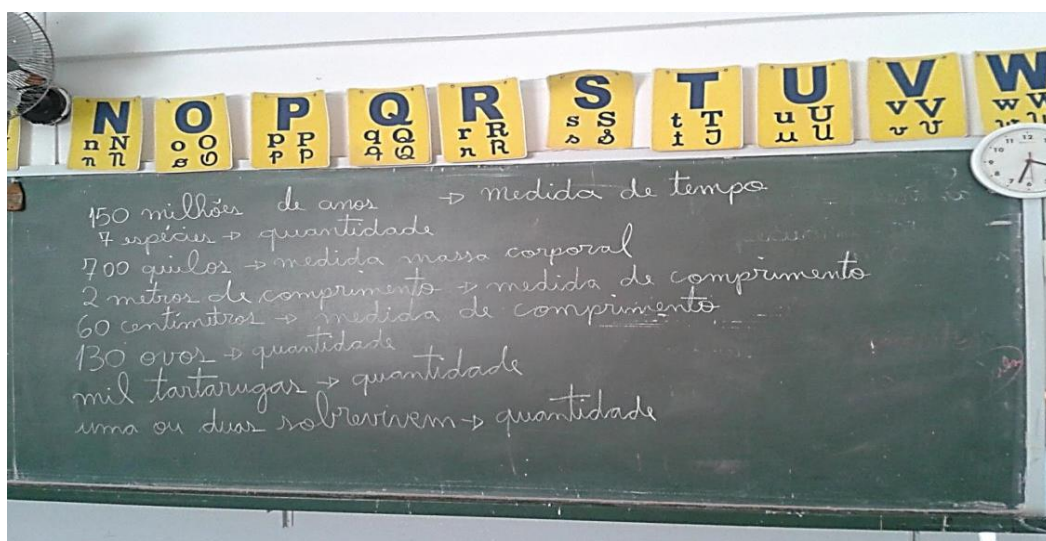 N O P Q R S T U V W
n N o O p P q Q r R s S t T u U v V w W
n N o O p P q Q r R s S t T u U v V w W
150 milhões de anos → medida de tempo
7 espécies → quantidade
700 quilos → medida massa corporal
2 metros de comprimento → medida de comprimento
60 centímetros → medida de comprimento
130 ovos → quantidade
mil tartarugas → quantidade
uma ou duas sobrevivem → quantidade